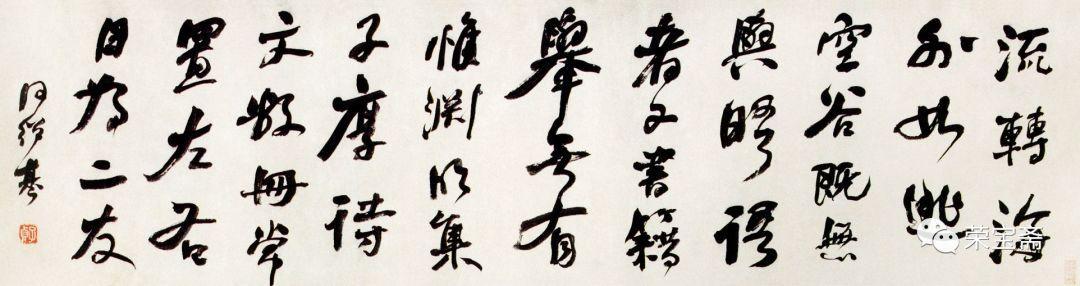 流轉海
外如逃
空谷既無
與晤語
者又書籍
舉無有
惟淵明集
子厚詩
文數冊常
置左右
目為二友
何紹基
荣宝斋